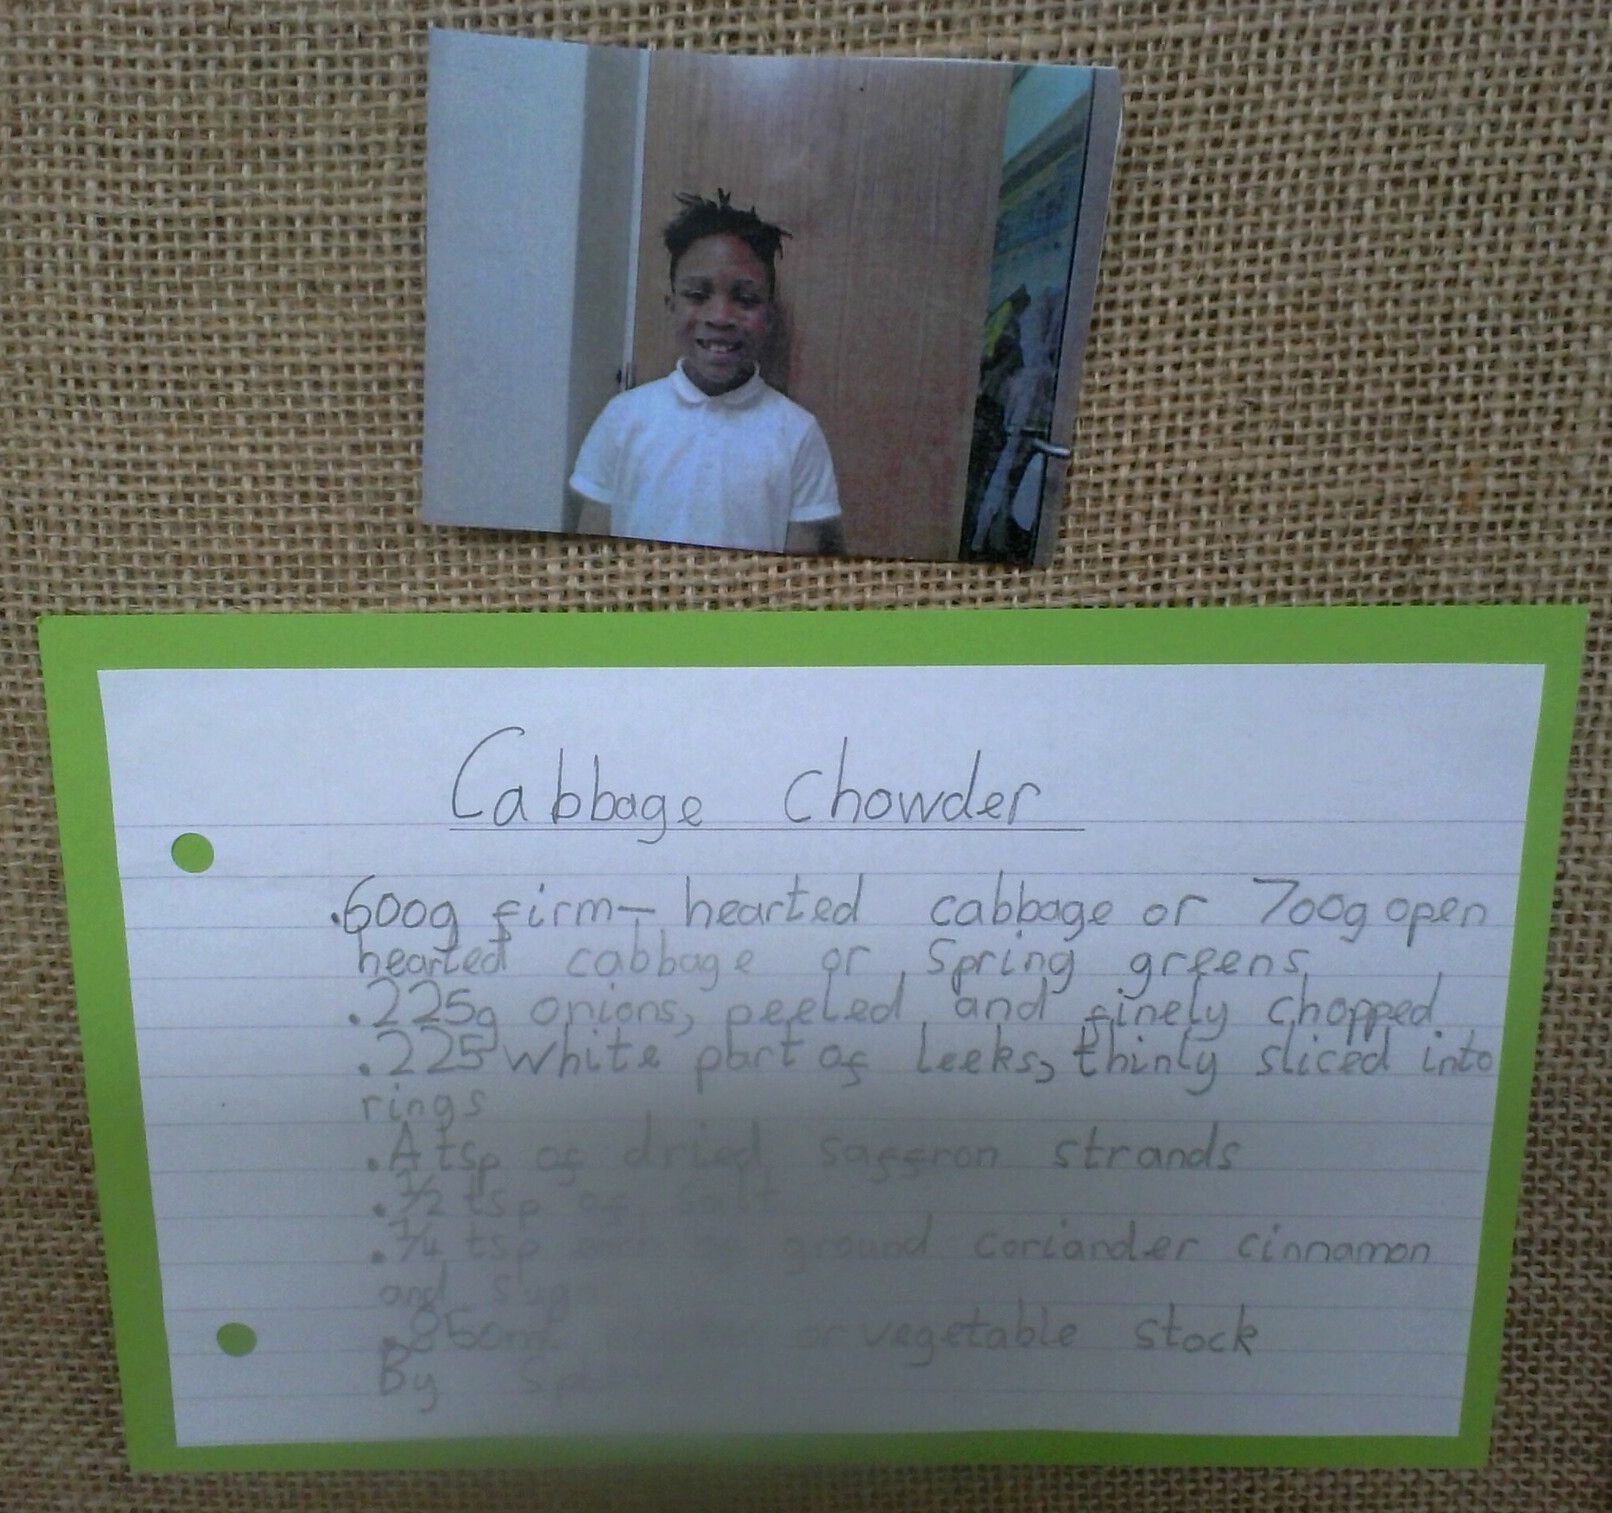 Cabbage Chowder
.600g firm- hearted cabbage or 700g open
hearted cabbage or spring greens
.225g onions, peeled and finely chopped
.225 white part of leeks, thinly sliced into
rings
.A tsp of dried saffron strands
.1/2 tsp of salt
.1/4 tsp ground coriander cinnamon
and
.850ml or vegetable stock
By